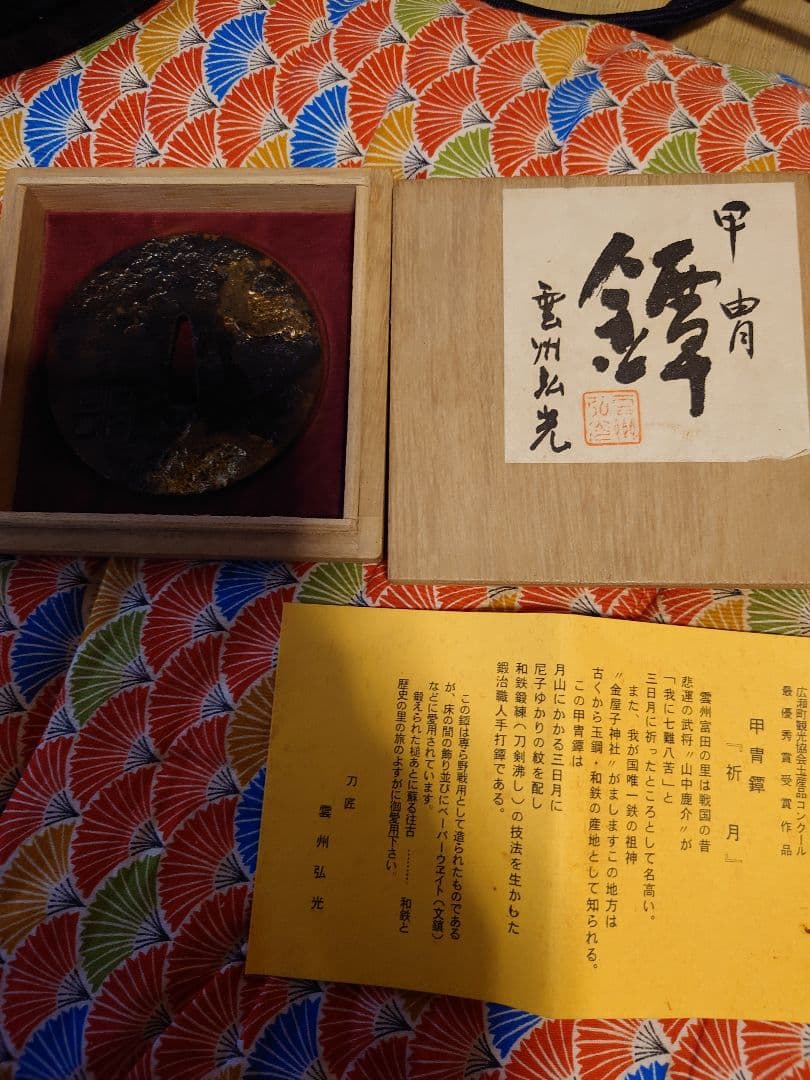 甲冑
鐔
雲州弘光
雲州
弘光
広瀬町観光協会土産品コンクール
最優秀賞受賞作品
甲冑鐔
『祈月』
雲州富田の里は戦国の昔
悲運の武将〝山中鹿介〟が
「我に七難八苦」と
三日月に祈ったところとして名高い。
また、我が国唯一鉄の祖神
〝金屋子神社〟がましますこの地方は
古くから玉鋼・和鉄の産地として知られる。
この甲冑鐔は
月山にかかる三日月に
尼子ゆかりの紋を配し
和鉄鍛練(刀剣沸し)の技法を生かした
鍛冶職人手打鐔である。
この鐔は専ら野戦用として造られたものである
が、床の間の飾り並びにペーパーウエイト(文鎮)
などに愛用されています。
鍛えられた槌あとに蘇る往古………和鉄と
歴史の里の旅のよすがに御愛用下さい。
刀匠
雲州弘光